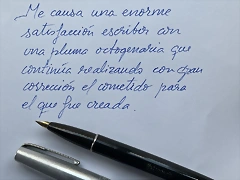 Me causa una enorme
satisfacción escribor con
una pluma octogenaria que
continúa realizando con gran
correción el cometido para
el que fue creada.